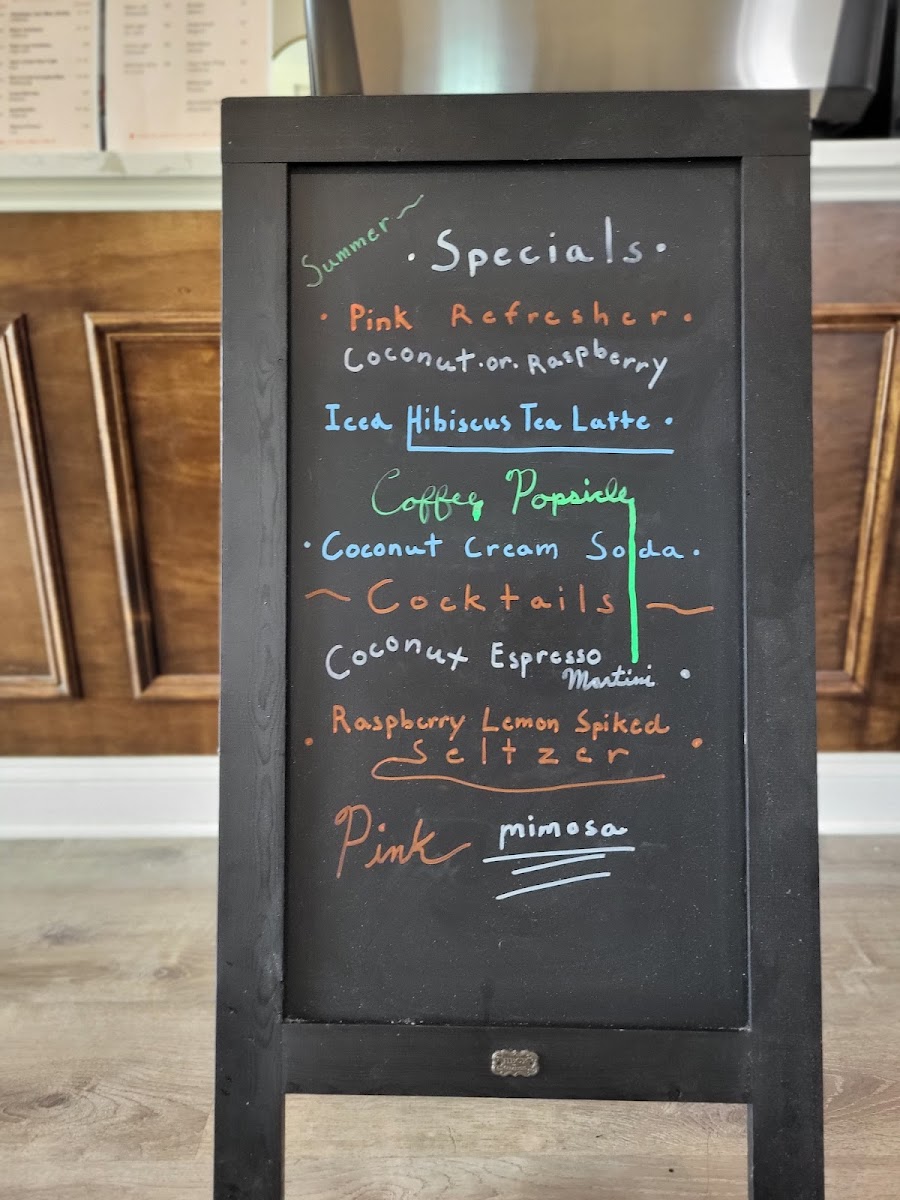 Summer~
· Specials ·
· Pink Refresher ·
Coconut · or · Raspberry
Iced Hibiscus Tea Latte ·
Coffee Popsicle
· Coconut Cream Soda ·
~ Cocktails ~
Coconut Espresso
Martini ·
Raspberry Lemon Spiked
· Seltzer ·
Pink mimosa